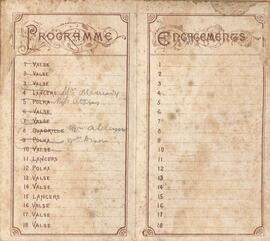 PROGRAMME
1 VALSE
2 VALSE
3 VALSE
4 LANCERS
5 POLKA
6 VALSE
7 VALSE
8 QUADRILLE
9 POLKA
10 VALSE
11 LANCERS
12 POLKA
13 VALSE
14 VALSE
15 LANCERS
16 VALSE
17 VALSE
18 VALSE
ENGAGEMENTS
1
2
3
4
5
6
7
8
9
10
11
12
13
14
15
16
17
18